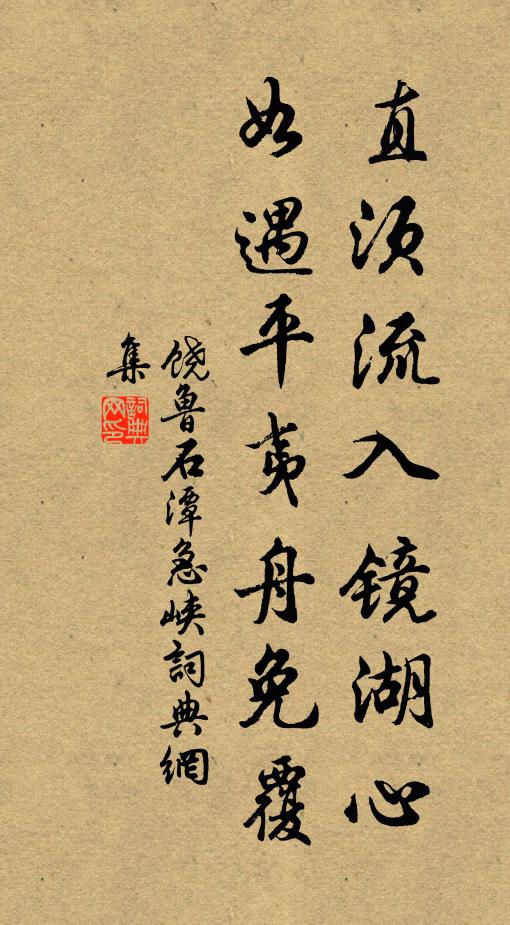 直须流入镜湖心
如遇平夷舟免覆
饶鲁石潭急峡詞典網
集
詞典
网印